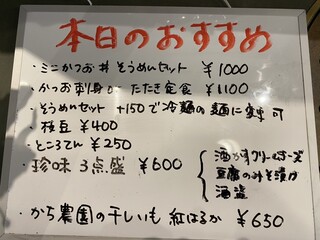 本日のおすすめ
・ミニかつお丼 そうめんセット ¥1000
・かつお刺身 or たたき定食 ¥1100
・そうめんセット +150で冷麺の麺に変更可
・枝豆 ¥400
・ところてん ¥250
・珍味 3点盛 ¥600
酒かすクリームチーズ
豆腐のみそ漬け
酒盗
・から農園の干しいも 紅はるか ¥650